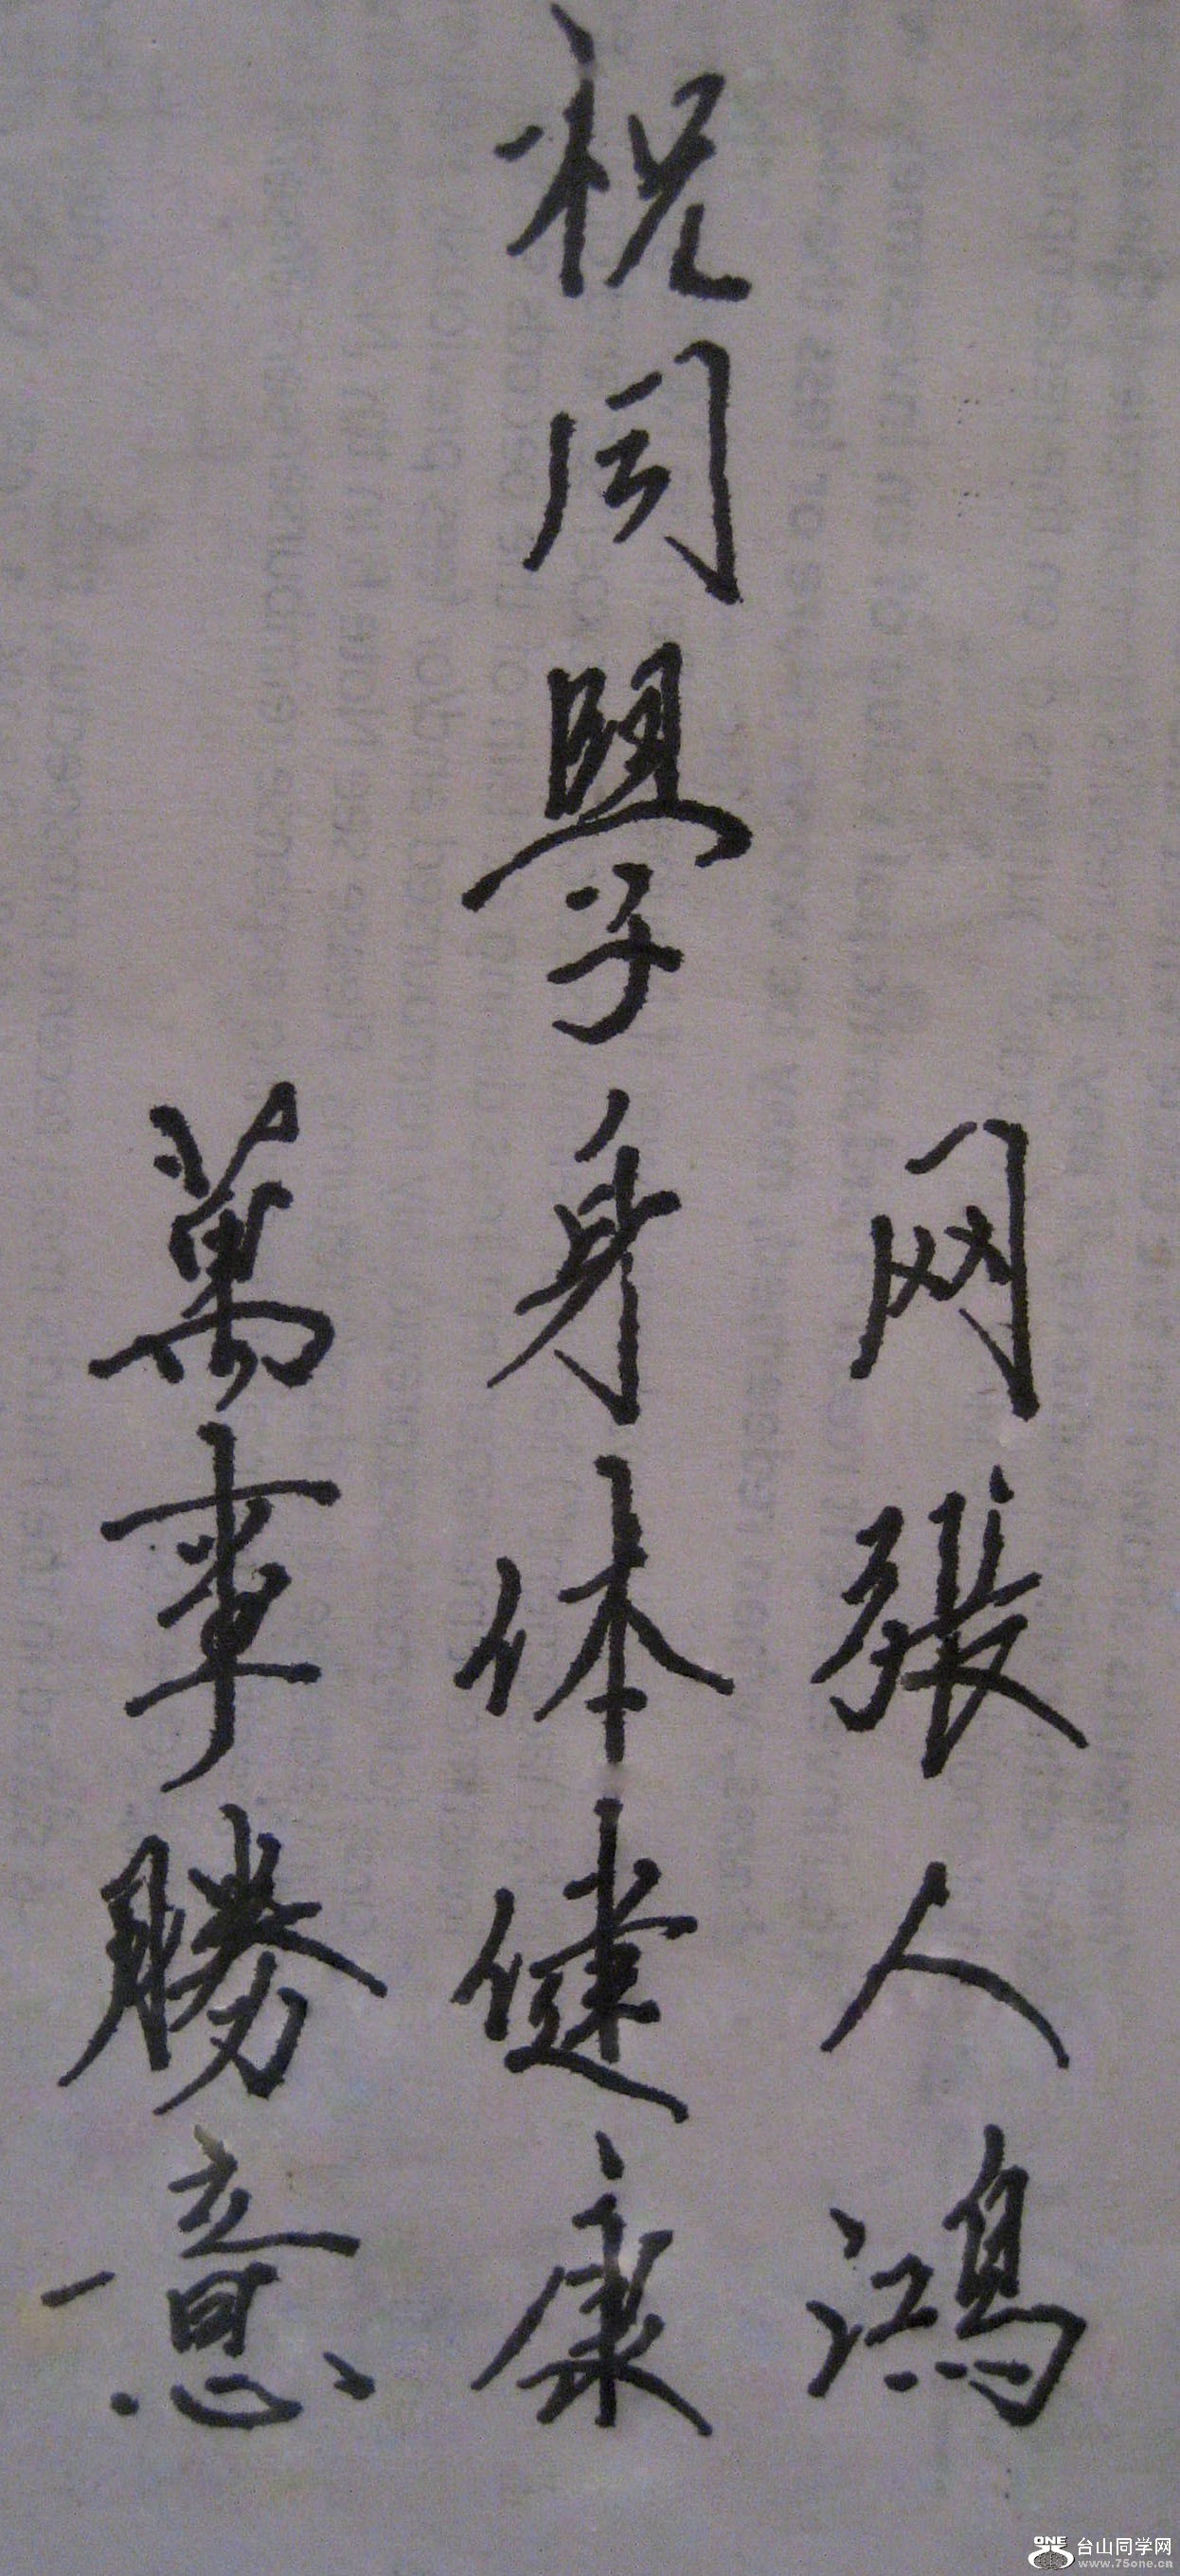 网張人鴻
祝同學身体健康
萬事勝意
ONE 台山同学网
www.75one.cn